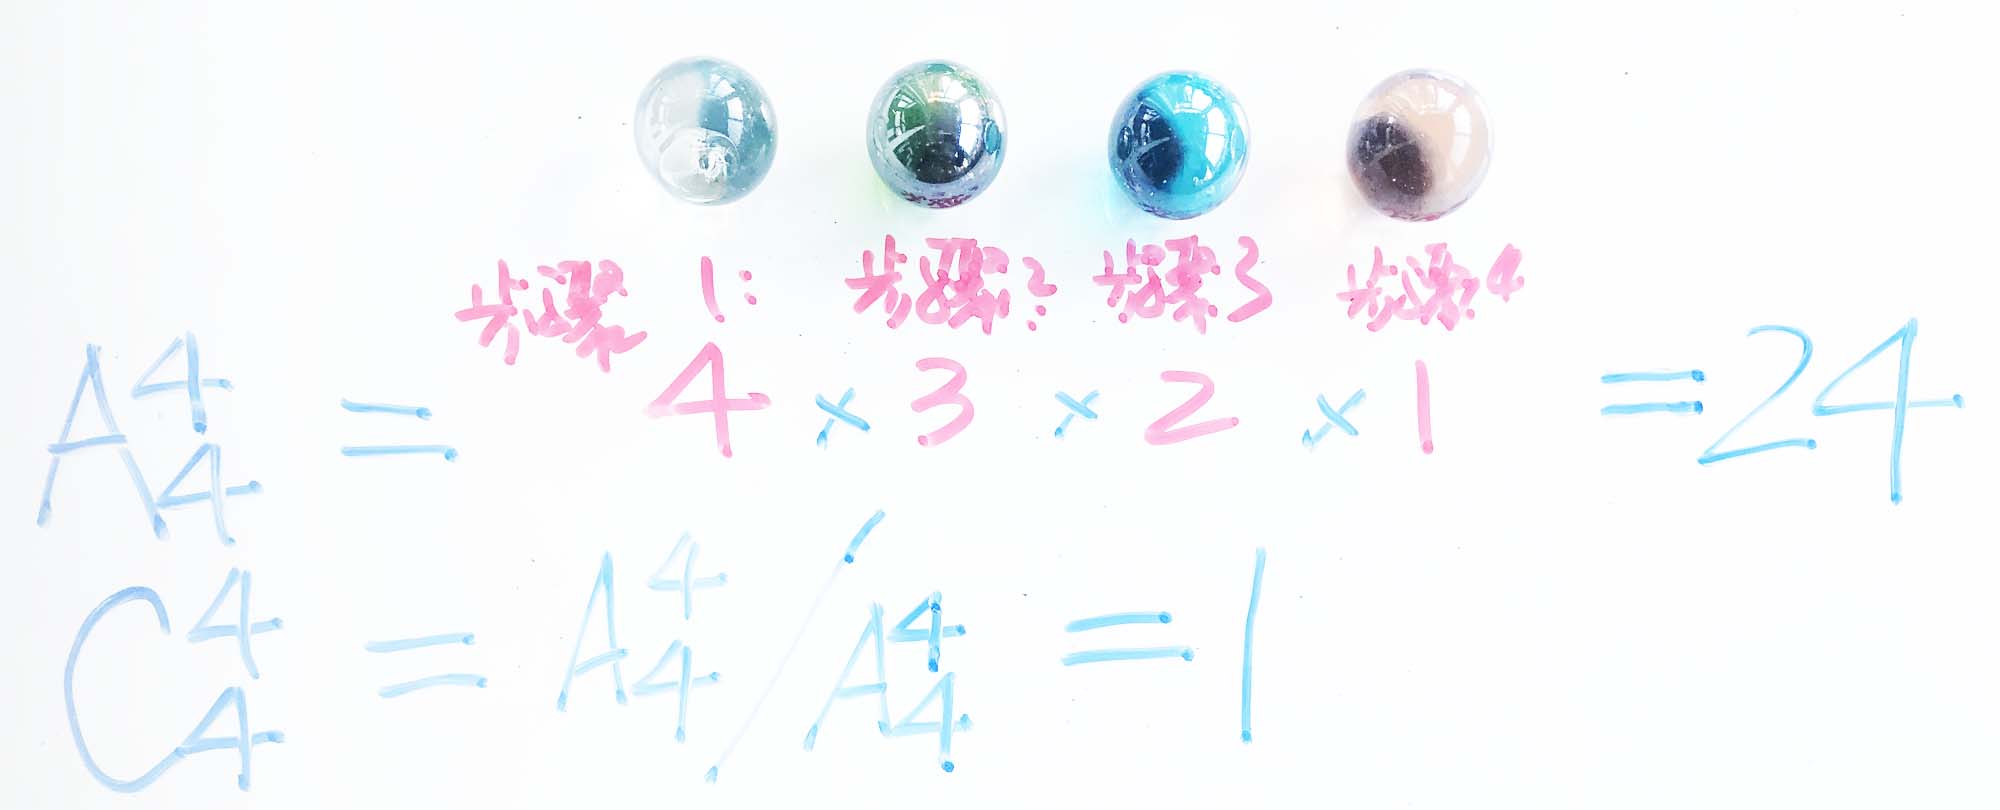 步骤 1: 步骤2: 步骤3 步骤4
A₄⁴ = 4 × 3 × 2 × 1 = 24
C₄⁴ = A₄⁴ / A₄⁴ = 1